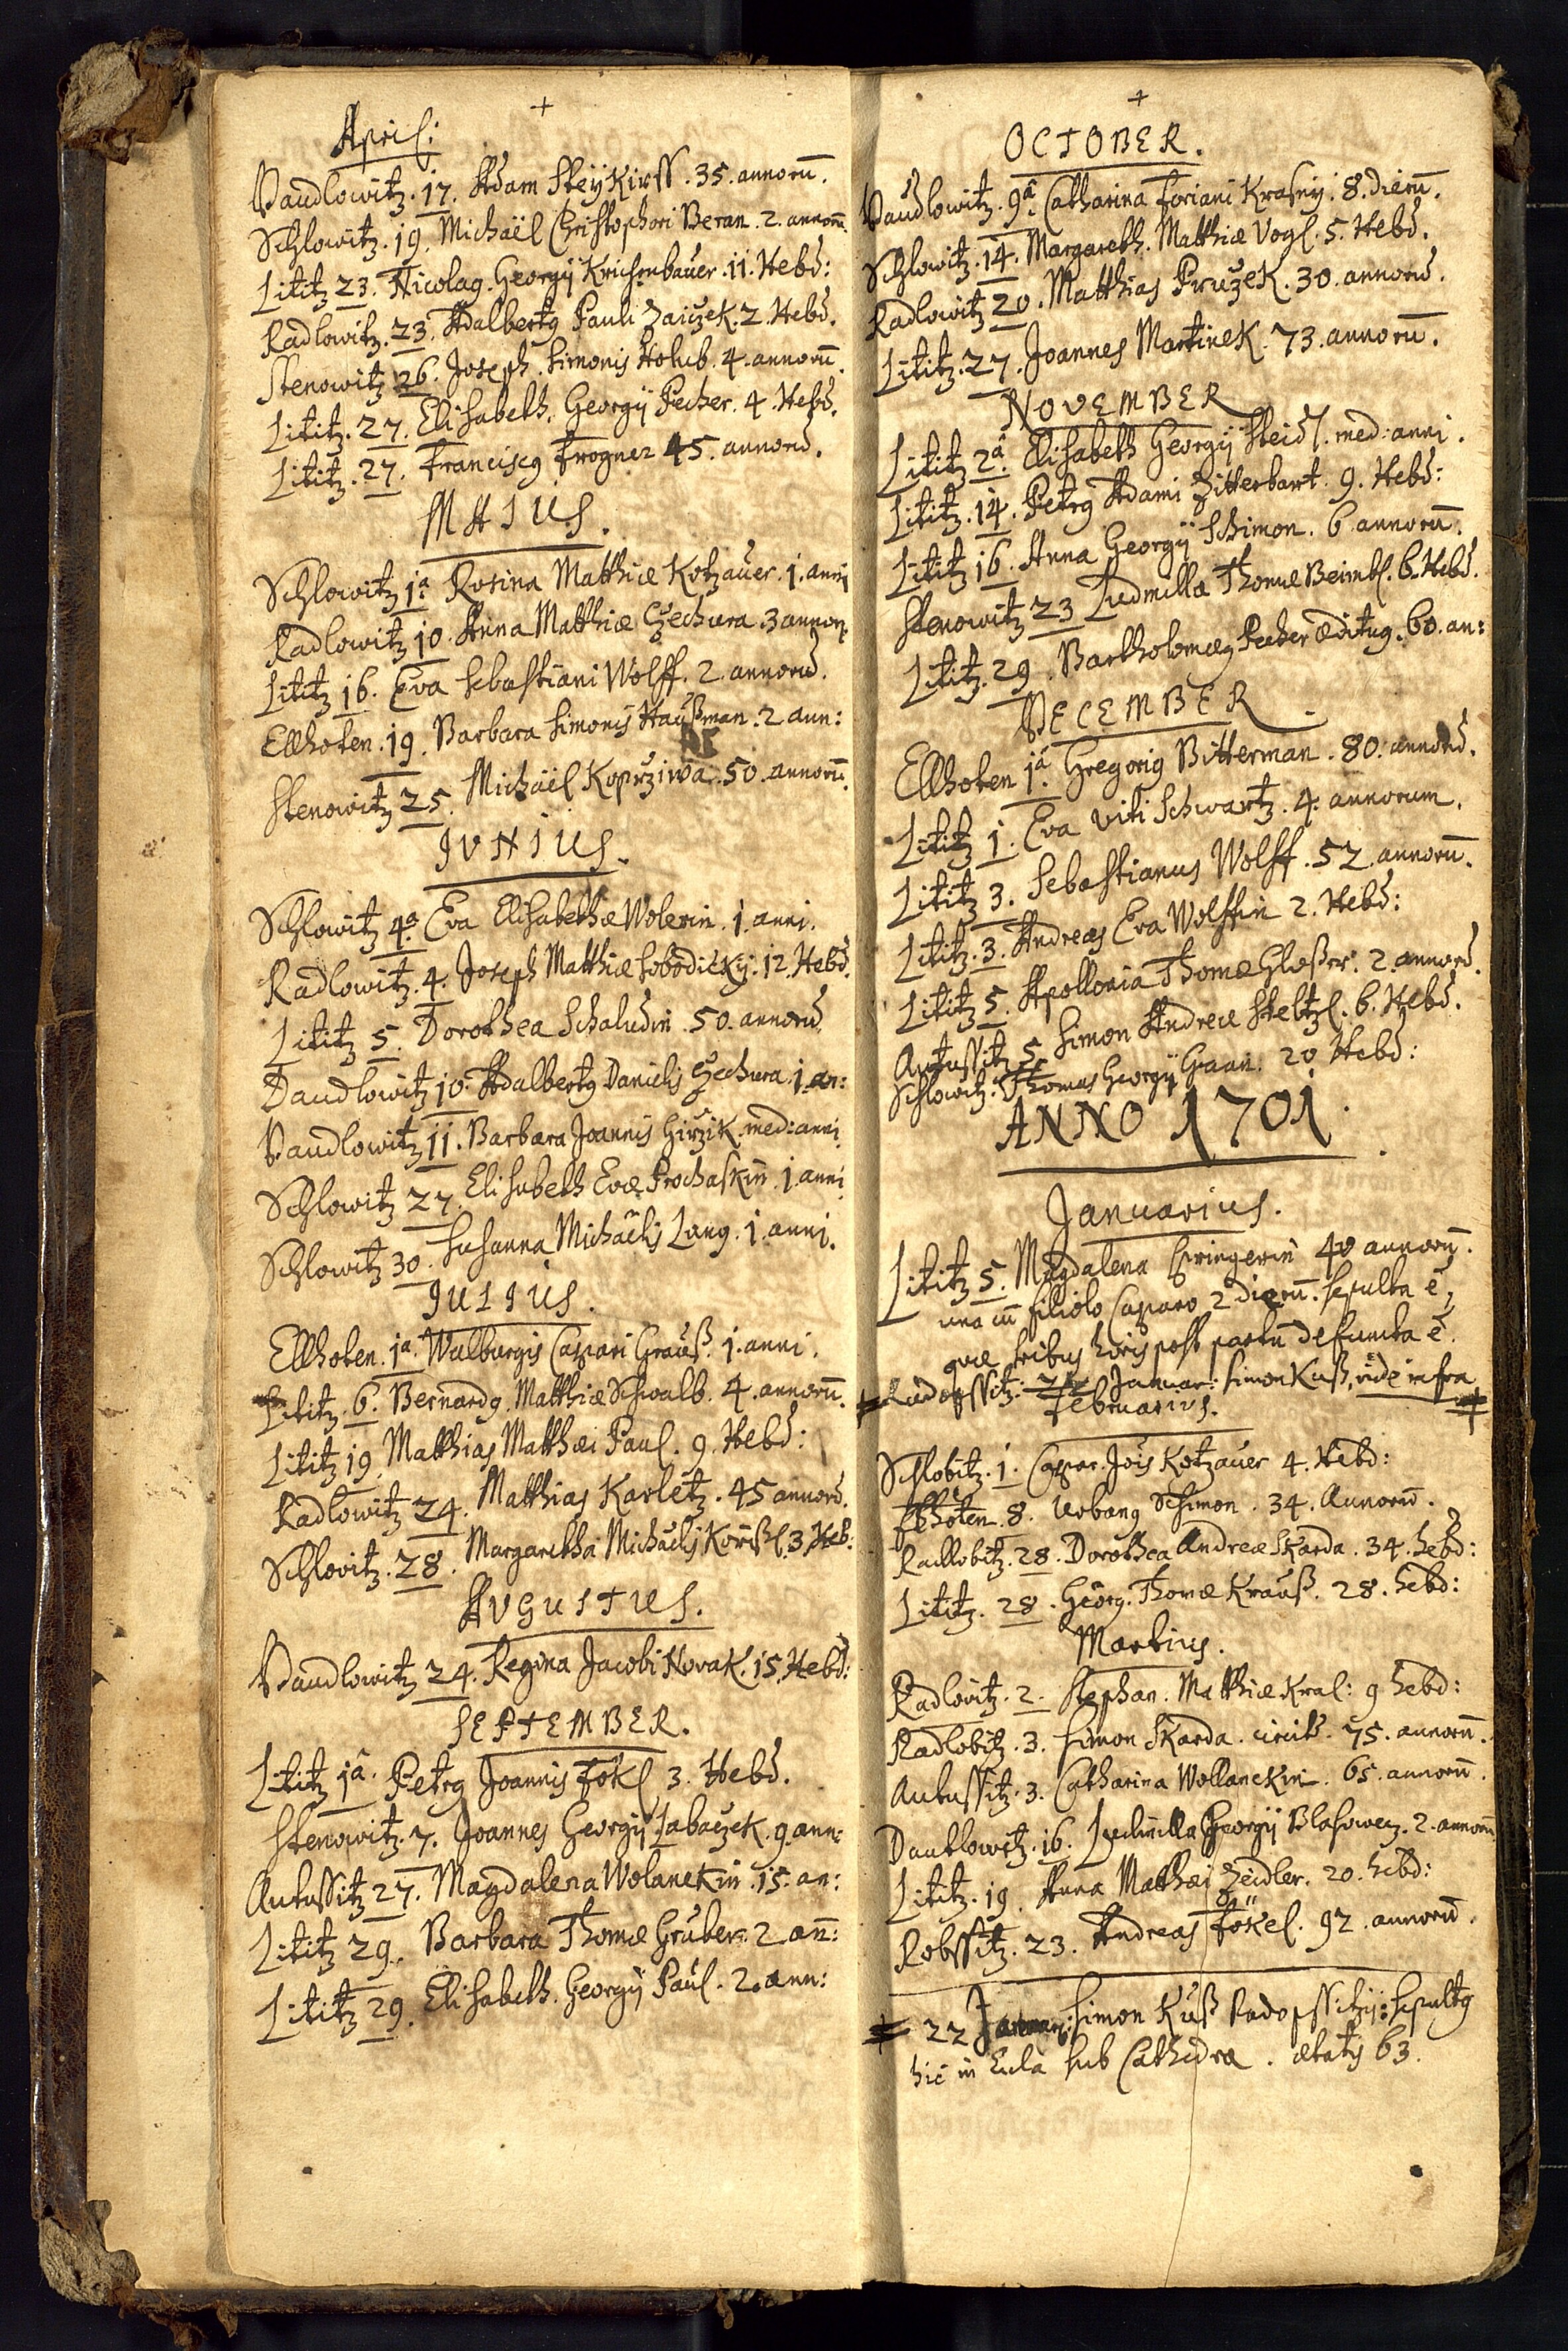 April:
Daudlowitz. 17. Adam Steÿkirss. 35. annorū.
Schlowitz. 19. Michaël Christophori Beran. 2. annorū.
Lititz 23. Nicolaꝰ Georgÿ Krichenbauer. 11. Hebd:
Radlowitz. 23. Adalbertꝰ Pauli Zaiczek. 2. Hebd.
Stenowitz 26. Joseph. Simonis Holub. 4. annorū.
Lititz. 27. Elisabeth. Georgÿ Pecher. 4. Hebd.
Lititz. 27. Franciscꝰ Frogner 45. annorū.
MAIUS.
Schlowitz 1a. Rosina Matthiæ Kotzauer. 1. anni
Radlowitz 10. Anna Matthiæ Czechura. 3 annorū
Lititz 16. Eva Sebastiani Wolff. 2. annorū.
Ellhoten. 19. Barbara Simonis Haußman. 2 ann:
Stenowitz 25. Michäel Koprziwa. 50. annorū.
IVNIUS.
Schlowitz 4a. Eva Elisabethæ Wolerin. 1. anni.
Radlowitz. 4. Joseph Matthiæ Sobodickÿ. 12. Hebd.
Lititz 5. Dorothea Schaludin. 50. annorū
Daudlowitz 10. Adalbertꝰ Danielis Czechura. 1. an:
Daudlowitz 11. Barbara Joannis Girzik. med: anni.
Schlowitz 27. Elisabeth Evæ Prochaskin. 1. anni
Schlowitz 30. Susanna Michaëlis Lang. 1. anni.
IULIUS.
Ellhoten. 1a. Walburgis Caspari Grauß. 1. anni.
Lititz. 6. Bernardꝰ Matthiæ Schwalb. 4. annorū.
Lititz 19. Matthias Matthæi Paul. 9. Hebd:
Radlowitz 24. Matthias Karletz. 45 annorū.
Schlovitz. 28. Margaretha Michaelis Korißl. 3. Heb:
AVGUSTUS.
Daudlowitz 24. Regina Jacobi Novak. 15. Hebd:
SEPTEMBER.
Lititz 1a. Petrꝰ Joannis Fökl 3. Hebd.
Stenowitz. 7. Joannes Georgÿ Labaczek. 9. ann:
Autussitz 27. Magdalena Wolanekin. 15. an:
Lititz 29. Barbara Thomæ Gruber. 2 añ:
Lititz 29. Elisabeth. Georgÿ Paul. 2. ann:
OCTOBER.
Daudlowitz. 9a. Catharina Floriani Krasnÿ. 8. dierū.
Schlowitz. 14. Margareth. Matthiæ Vogl. 5. Hebd.
Radlowitz 20. Matthias Pruzek. 30. annorū.
Lititz. 27. Joannes Martinek. 73. annorū.
NOVEMBER
Lititz 2a. Elisabeth Georgÿ Steidl. med: anni.
Lititz. 14. Petrꝰ Adami Zitterbart. 9. Hebd:
Lititz 16. Anna Georgÿ Schimon. 6 annorū.
Stenowitz 23 Ludmilla Thomæ Beimbl. 6. Hebd.
Lititz. 29. Bartholomæꝰ Pecher ædituꝰ. 60. an:
DECEMBER
Ellhoten 1a. Gregoriꝰ Bitterman. 80. annorū.
Lititz 1. Eva Viti Schwartz. 4. annorum.
Lititz 3. Sebastianus Wolff. 52. annorū.
Lititz. 3. Andreas Eva Wolffin 2. Hebd:
Lititz 5. Apollonia Thomæ Gloßer. 2. annorū.
Autussitz 5. Simon Andreæ Steltzl. 6. Hebd.
Schlowitz. Thomas Georgÿ Graan. 20 Hebd:
ANNO 1701.
Januarius.
Lititz 5. Magdalena Springerin 40 annorū.
una cū filiolo Casparo 2 dierū. sepulta ē,
quæ tribus horis post partū defuncta ē.
Radopssitz: 22 Januar: Simon Kuß, vide infra
Februarius.
Schlobitz. 1. Caspar. Jōis Kotzauer 4. Hebd:
Elhoten. 8. Urbanꝰ Schimon. 34. Annorū.
Radlobitz. 28. Dorothea Andreæ Skarda. 34. hebd:
Lititz. 28. Georg. Thomæ Krauß. 28. hebd:
Martius.
Radlovitz. 2. Stephan. Matthiæ Kral: 9 hebd:
Radlobitz. 3. Simon Skarda. circit. 75. annorū.
Autussitz. 3. Catharina Wollanekin. 65. annorū.
Dautlowitz. 16. Ludmilla Georgÿ Blahowez. 2. annorū
Lititz. 19. Anna Matthæi Zeidler. 20. hebd:
Robssitz. 23. Andreas Fökel. 92. annorū.
22 Januarÿ: Simon Kuß Radopssitzÿ: sepultꝰ
hic in Eccla sub Cathedra. ætatis 63.